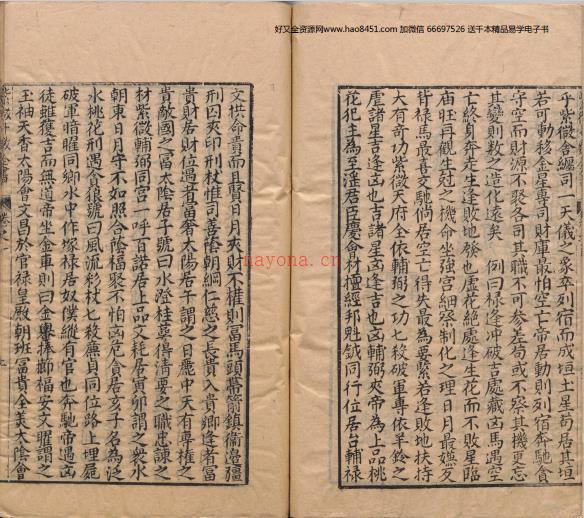 好又全资源网www.hao8451.com 加微信 66697526 送千本精品易学电子书
乎紫微舍躔司一天儀之象卒列宿而成垣土星苟居其垣
若可動移金星專司財庫最怕空亡帝居動則列宿奔馳貪
守空而財源不聚各司其職不可參差苟或不察其機更忘
其變則數之造化遠矣 例曰祿逢冲破吉處藏凶馬遇空
亡終身奔走生逢敗地發也虛花絕處逢生花而不敗星臨
庙旺再觀生尅之機命坐強宮細察制化之理日月最嫌反
背禄馬最喜交馳倘居空亡得失最為要緊若逢敗地扶持
大有竒功紫微天府全依輔弼之功七殺破軍專依羊鈴之
虐諸星吉逢凶也吉諸星凶逢吉也凶輔弼夾帝為上品桃
花犯主為至淫君臣慶會材擅經邦魁鉞同行位居台輔禄
文拱命貴而且賢日月夾財不權則富馬頭帶箭鎮衞邉疆
刑囚夾印刑杖惟司善陰朝綱仁慈之長貴入貴鄉逢者富
貴財居財位遇者富奢太陽居午謂之日麗中天有專權之
貴敵國之富太陰居子號曰水澄桂萼得清要之職忠諫之
材紫微輔弼同宮一呼百諾居上品文耗居寅卯謂之衆水
朝東日月守不如照合陰福聚不怕凶危貪居亥子名為泛
水桃花刑遇貪狼號曰風流彩杖七殺亷貞同位路上埋屍
破軍暗曜同鄉水中作塚禄居奴僕縱有官也奔馳帝遇凶
徒雖獲吉而無道帝坐金車則曰金轝捧櫛福安文曜謂之
玉袖天香太陽會文昌於官禄皇殿朝班富貴全美太陰會
nayona.cn